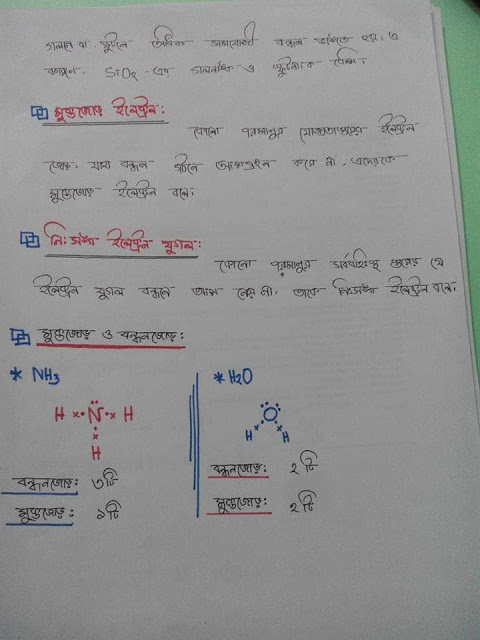 গলাতে বা ফুটাতে অধিক সমযোজী বন্ধন ভাঙতে হয়। এ
কারণে SiO2 -এর গলনাঙ্ক ও স্ফুটনাংক বেশি।
মুক্তজোড় ইলেকট্রন:
কোনো পরমাণুর যোজ্যতাস্তরের ইলেকট্রন
জোড় যারা বন্ধন গঠনে অংশগ্রহন করে না, এদেরকে
মুক্তজোড় ইলেকট্রন বলে।
নি:সঙ্গ ইলেকট্রন যুগল:
কোনো পরমাণুর সর্ববহিঃস্থ স্তরের যে
ইলেকট্রন যুগল বন্ধনে অংশ নেয় না, তাকে নিঃসঙ্গ ইলেকট্রন বলে।
মুক্তজোড় ও বন্ধনজোড়:
* NH3
H N H
H
বন্ধনজোড়: ৩টি
মুক্তজোড়: ১টি
* H2O
O
H H
বন্ধনজোড়: ২টি
মুক্তজোড়: ২টি